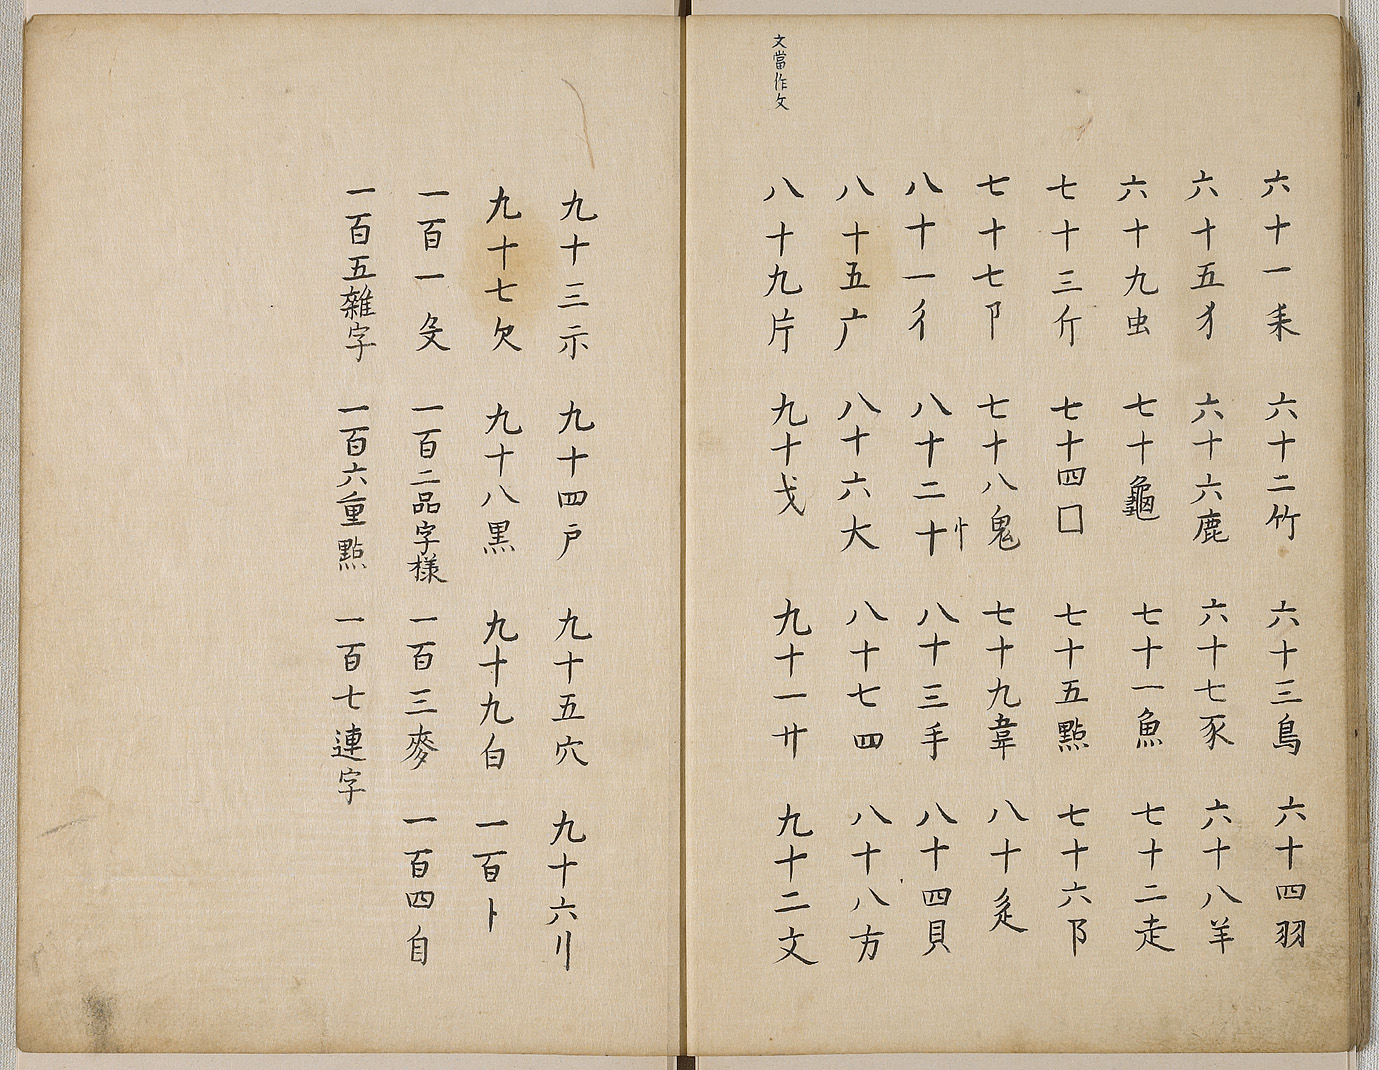 六十一耒 六十二竹 六十三鳥 六十四羽
六十五犭 六十六鹿 六十七豕 六十八羊
六十九虫 七十龜 七十一魚 七十二走
七十三斤 七十四囗 七十五點 七十六阝
七十七卩 七十八鬼 七十九韋 八十辵
八十一彳 八十二十忄 八十三手 八十四貝
八十五广 八十六大 八十七四 八十八方
文當作攵
八十九片 九十戈 九十一廾 九十二文
九十三示 九十四戶 九十五穴 九十六刂
九十七欠 九十八黒 九十九白 一百卜
一百一殳 一百二品字樣 一百三麥 一百四自
一百五雜字 一百六重點 一百七連字